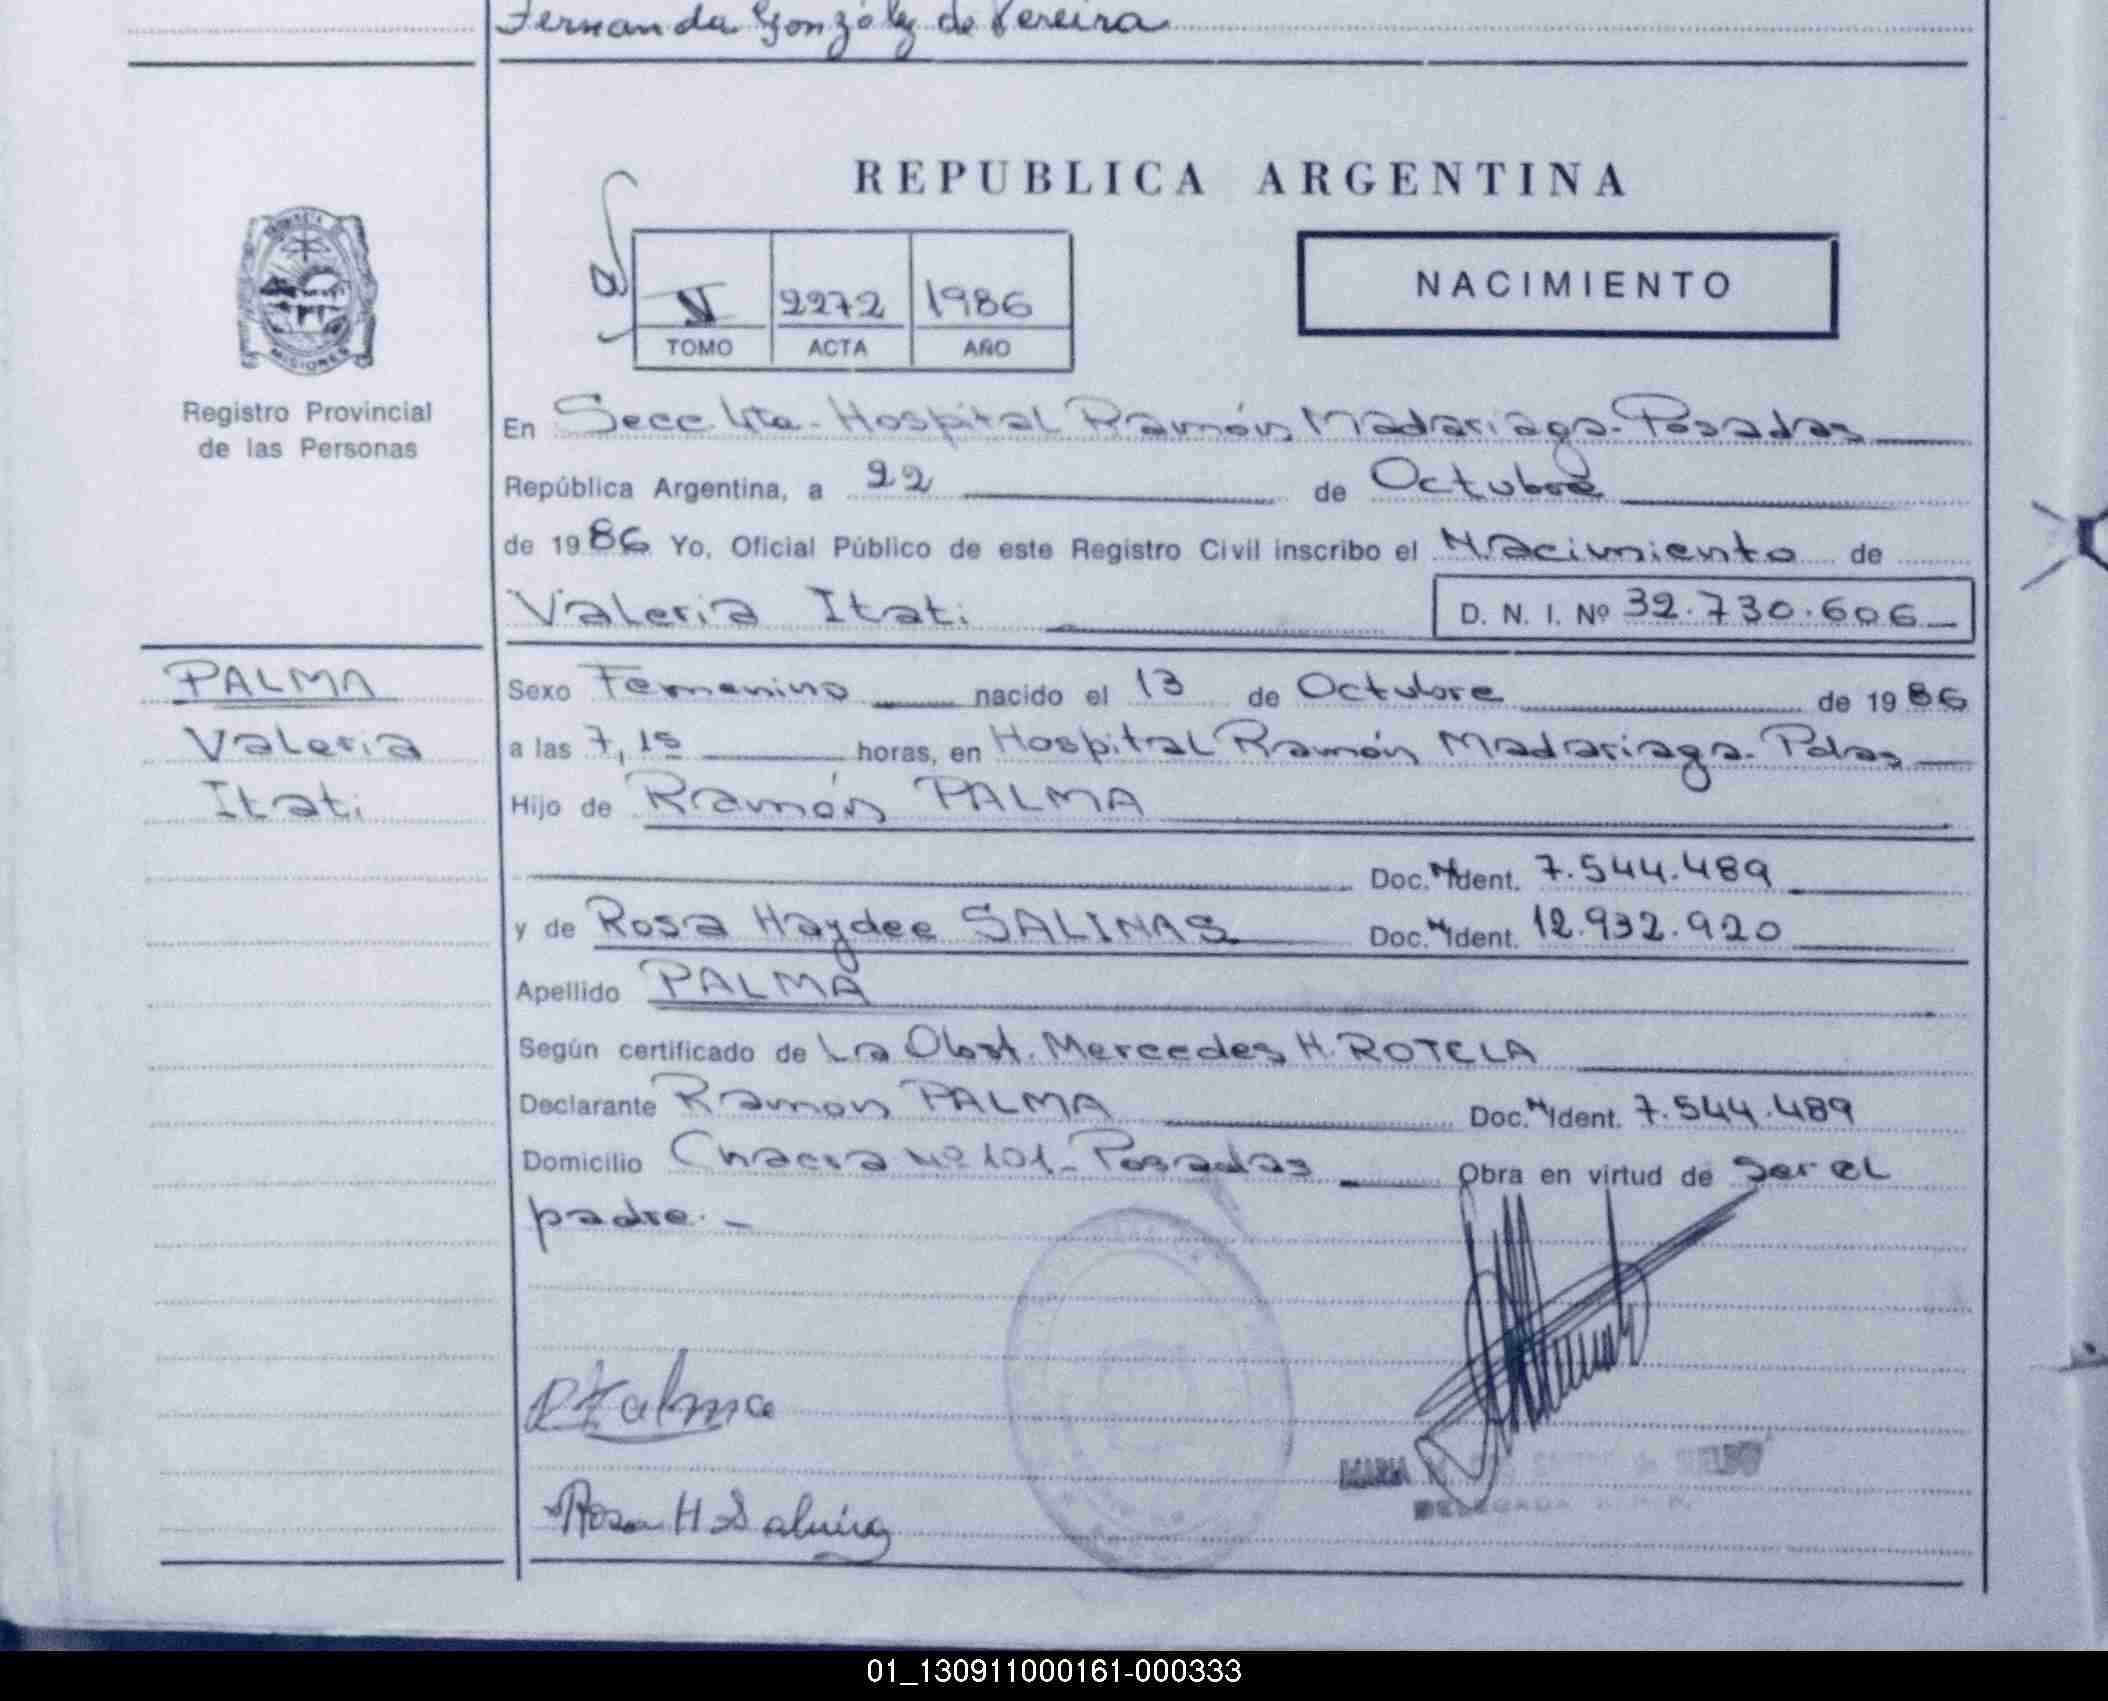 Fernanda González de Pereira
REPUBLICA ARGENTINA
NACIMIENTO
2272 1986
TOMO ACTA AÑO
MISIONES
Registro Provincial
de las Personas
En Secc 4ta - Hospital Ramón Madariaga - Posadas
República Argentina, a 22 de Octubre
de 1986 Yo, Oficial Público de este Registro Civil inscribo el Nacimiento de
Valeria Itatí D. N. I. Nº 32.730.606
PALMA
Valeria
Itatí
Sexo Femenino nacido el 13 de Octubre de 1986
a las 7,15 horas, en Hospital Ramón Madariaga - Pdas
Hijo de Ramón PALMA
Doc. N Ident. 7.544.489
y de Rosa Haydee SALINAS Doc. N Ident. 12.932.920
Apellido PALMA
Según certificado de La Obst. Mercedes H. ROTELA
Declarante Ramon PALMA Doc. N Ident. 7.544.489
Domicilio Chacra Nº 101 - Posadas Obra en virtud de ser el
padre. -
R Palma
MARIA
DELEGADA
Rosa H Salinas
01_130911000161-000333